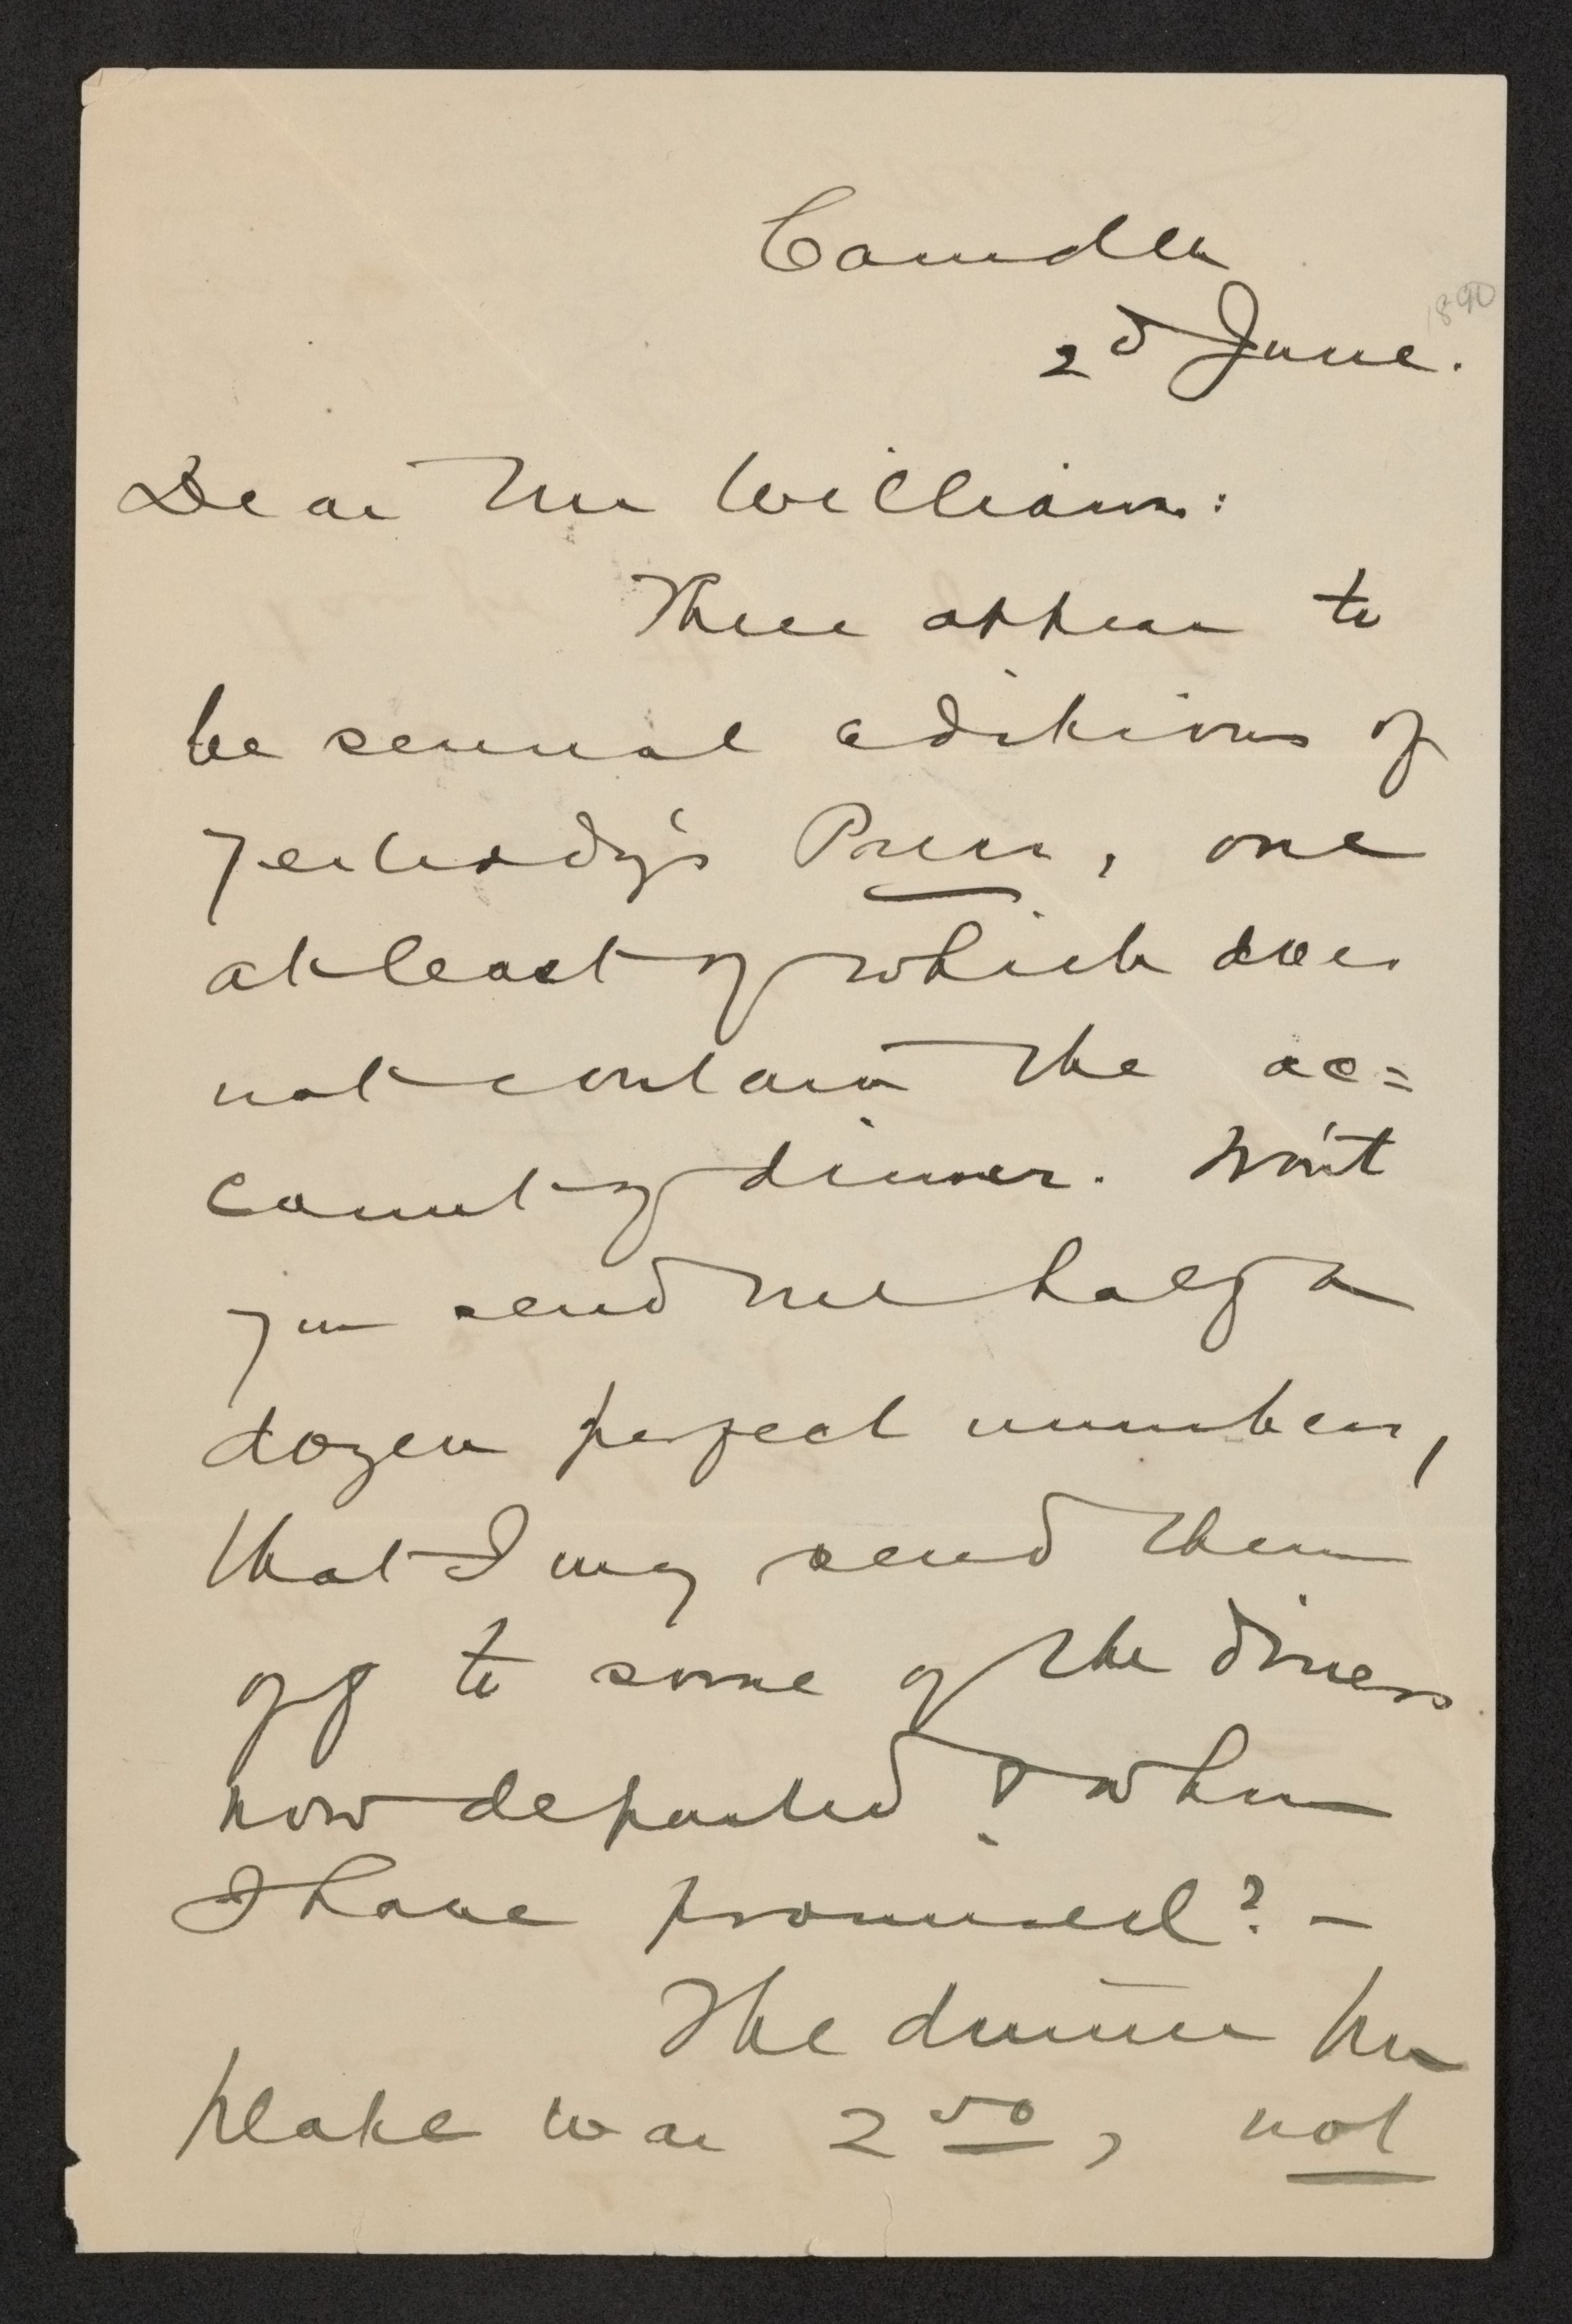 Camden
2d June.
1890
Dear Mr Williams:
There appear to
be several editions of
yesterday's Press, one
at least of which does
not contain the ac=
count of dinner. Won't
you send me half a
dozen perfect numbers,
that I may send them
off to some of the diners
now departed & whom
I have promised? —
The dinner per
plate was 2 50, not